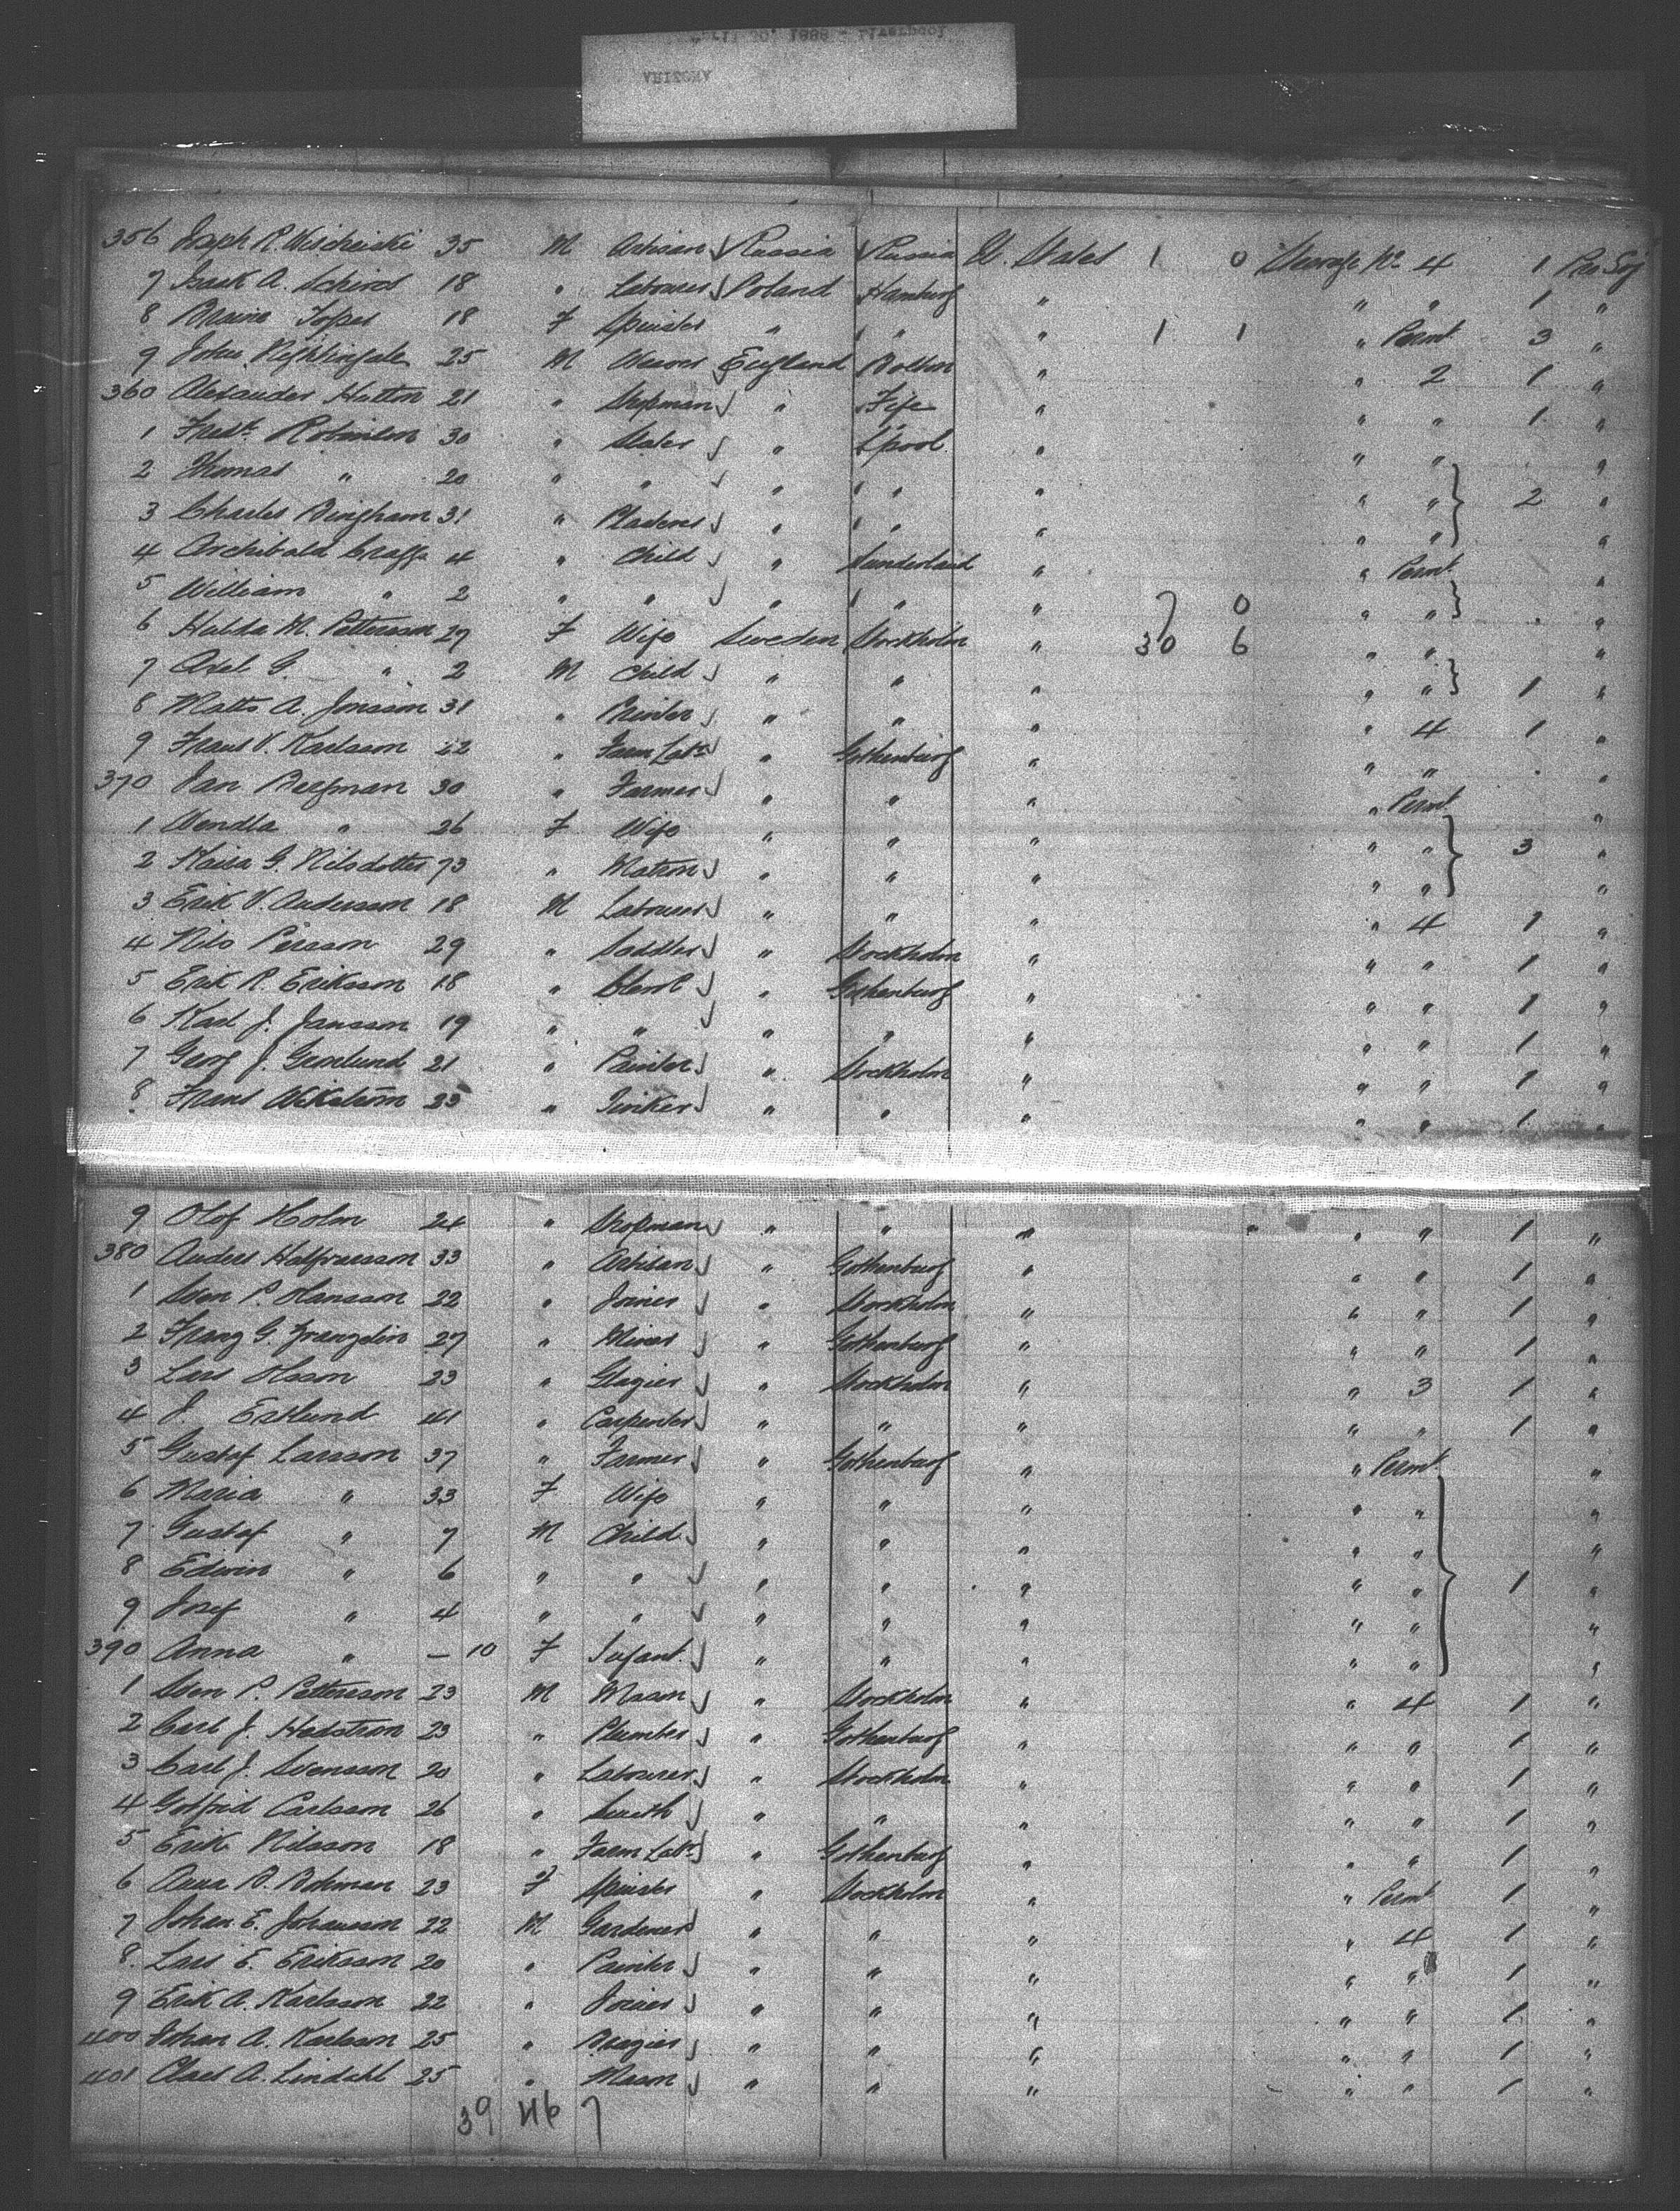 April 30, 1888 - Liverpool
ARIZONA
356 Joseph R. 35 M Artisan Russia Russia U. States 1 0 Steerage No 4 1 Pro Soj
7 Isack A. 18 " Labourer Poland Hamburg " " " 1 "
8 18 F Spinster " " " 1 1 " Permt 3 "
9 John Nightingale 25 M Weaver England Bolton " " 2 1 "
360 Alexander Hutton 21 " Shopman " Fife " " " 1 "
1 Fredk. Robinson 30 " Slater " L'pool " " " "
2 Thomas " 20 " " " " " " " 2 "
3 Charles Bingham 31 " Plasterer " " " " " "
4 Archibald 4 " Child " Sunderland " " Permt "
5 William " 2 " " " " " 7 0 " " "
6 Hulda M. Petterson 27 F Wife Sweden Stockholm " 30 6 " " "
7 Axel G. " 2 M Child " " " " " 1 "
8 Matts A. Jonsson 31 " " " " " 4 1 "
9 Frans V. Karlsson 22 " Farm Labr " Gothenburg " " " "
370 Jan Bergman 30 " Farmer " " " " Permt "
1 Wendla " 26 F Wife " " " " " 3 "
2 Kaisa G. Nilsdotter 73 " Matron " " " " " "
3 Erik V. Andersson 18 M Labourer " " " " 4 1 "
4 Nils Persson 29 " Saddler " Stockholm " " " 1 "
5 Erik R. Eriksson 18 " Clerk " Gothenburg " " " 1 "
6 Karl J. Jansson 19 " " " " " " " 1 "
7 Georg J. Granlund 21 " Painter " Stockholm " " " 1 "
8 Frans Wikström 25 " Tinker " " " " " 1 "
9 Olof Holm 24 " Shopman " " " " " 1 "
380 Anders 33 " Artisan " Gothenburg " " " 1 "
1 Sven P. Hansson 22 " Joiner " Stockholm " " " 1 "
2 Franz G. Franzelin 27 " Miner " Gothenburg " " " 1 "
3 Lars Olsson 23 " Glazier " Stockholm " " 3 1 "
4 J. Estlund 41 " Carpenter " " " " " 1 "
5 Gustaf Larsson 37 " Farmer " Gothenburg " " Permt "
6 Maria " 33 F Wife " " " " " "
7 Gustaf " 7 M Child " " " " " "
8 Edwin " 6 " " " " " " " 1 "
9 Josef " 4 " " " " " " " "
390 Anna " — 10 F Infant " " " " " "
1 Sven P. Petterson 23 M Mason " Stockholm " " 4 1 "
2 Carl J. Hedstrom 23 " Plumber " Gothenburg " " " 1 "
3 Carl J. Svensson 20 " Labourer " Stockholm " " " 1 "
4 Gotfrid Carlsson 26 " Smith " " " " " 1 "
5 Erik Nilsson 18 " Farm Labr " Gothenburg " " " 1 "
6 Anna B. Bohman 23 F Spinster " Stockholm " " Permt 1 "
7 Johan E. Johansson 22 M Gardener " " " " 4 1 "
8 Lars E. Eriksson 20 " Painter " " " " " 1 "
9 Erik A. Karlsson 22 " Joiner " " " " " 1 "
400 Johan A. Karlsson 25 " Brazier " " " " " 1 "
401 Claes A. Lindahl 25 " Mason " " " " " 1 "
39 46 7